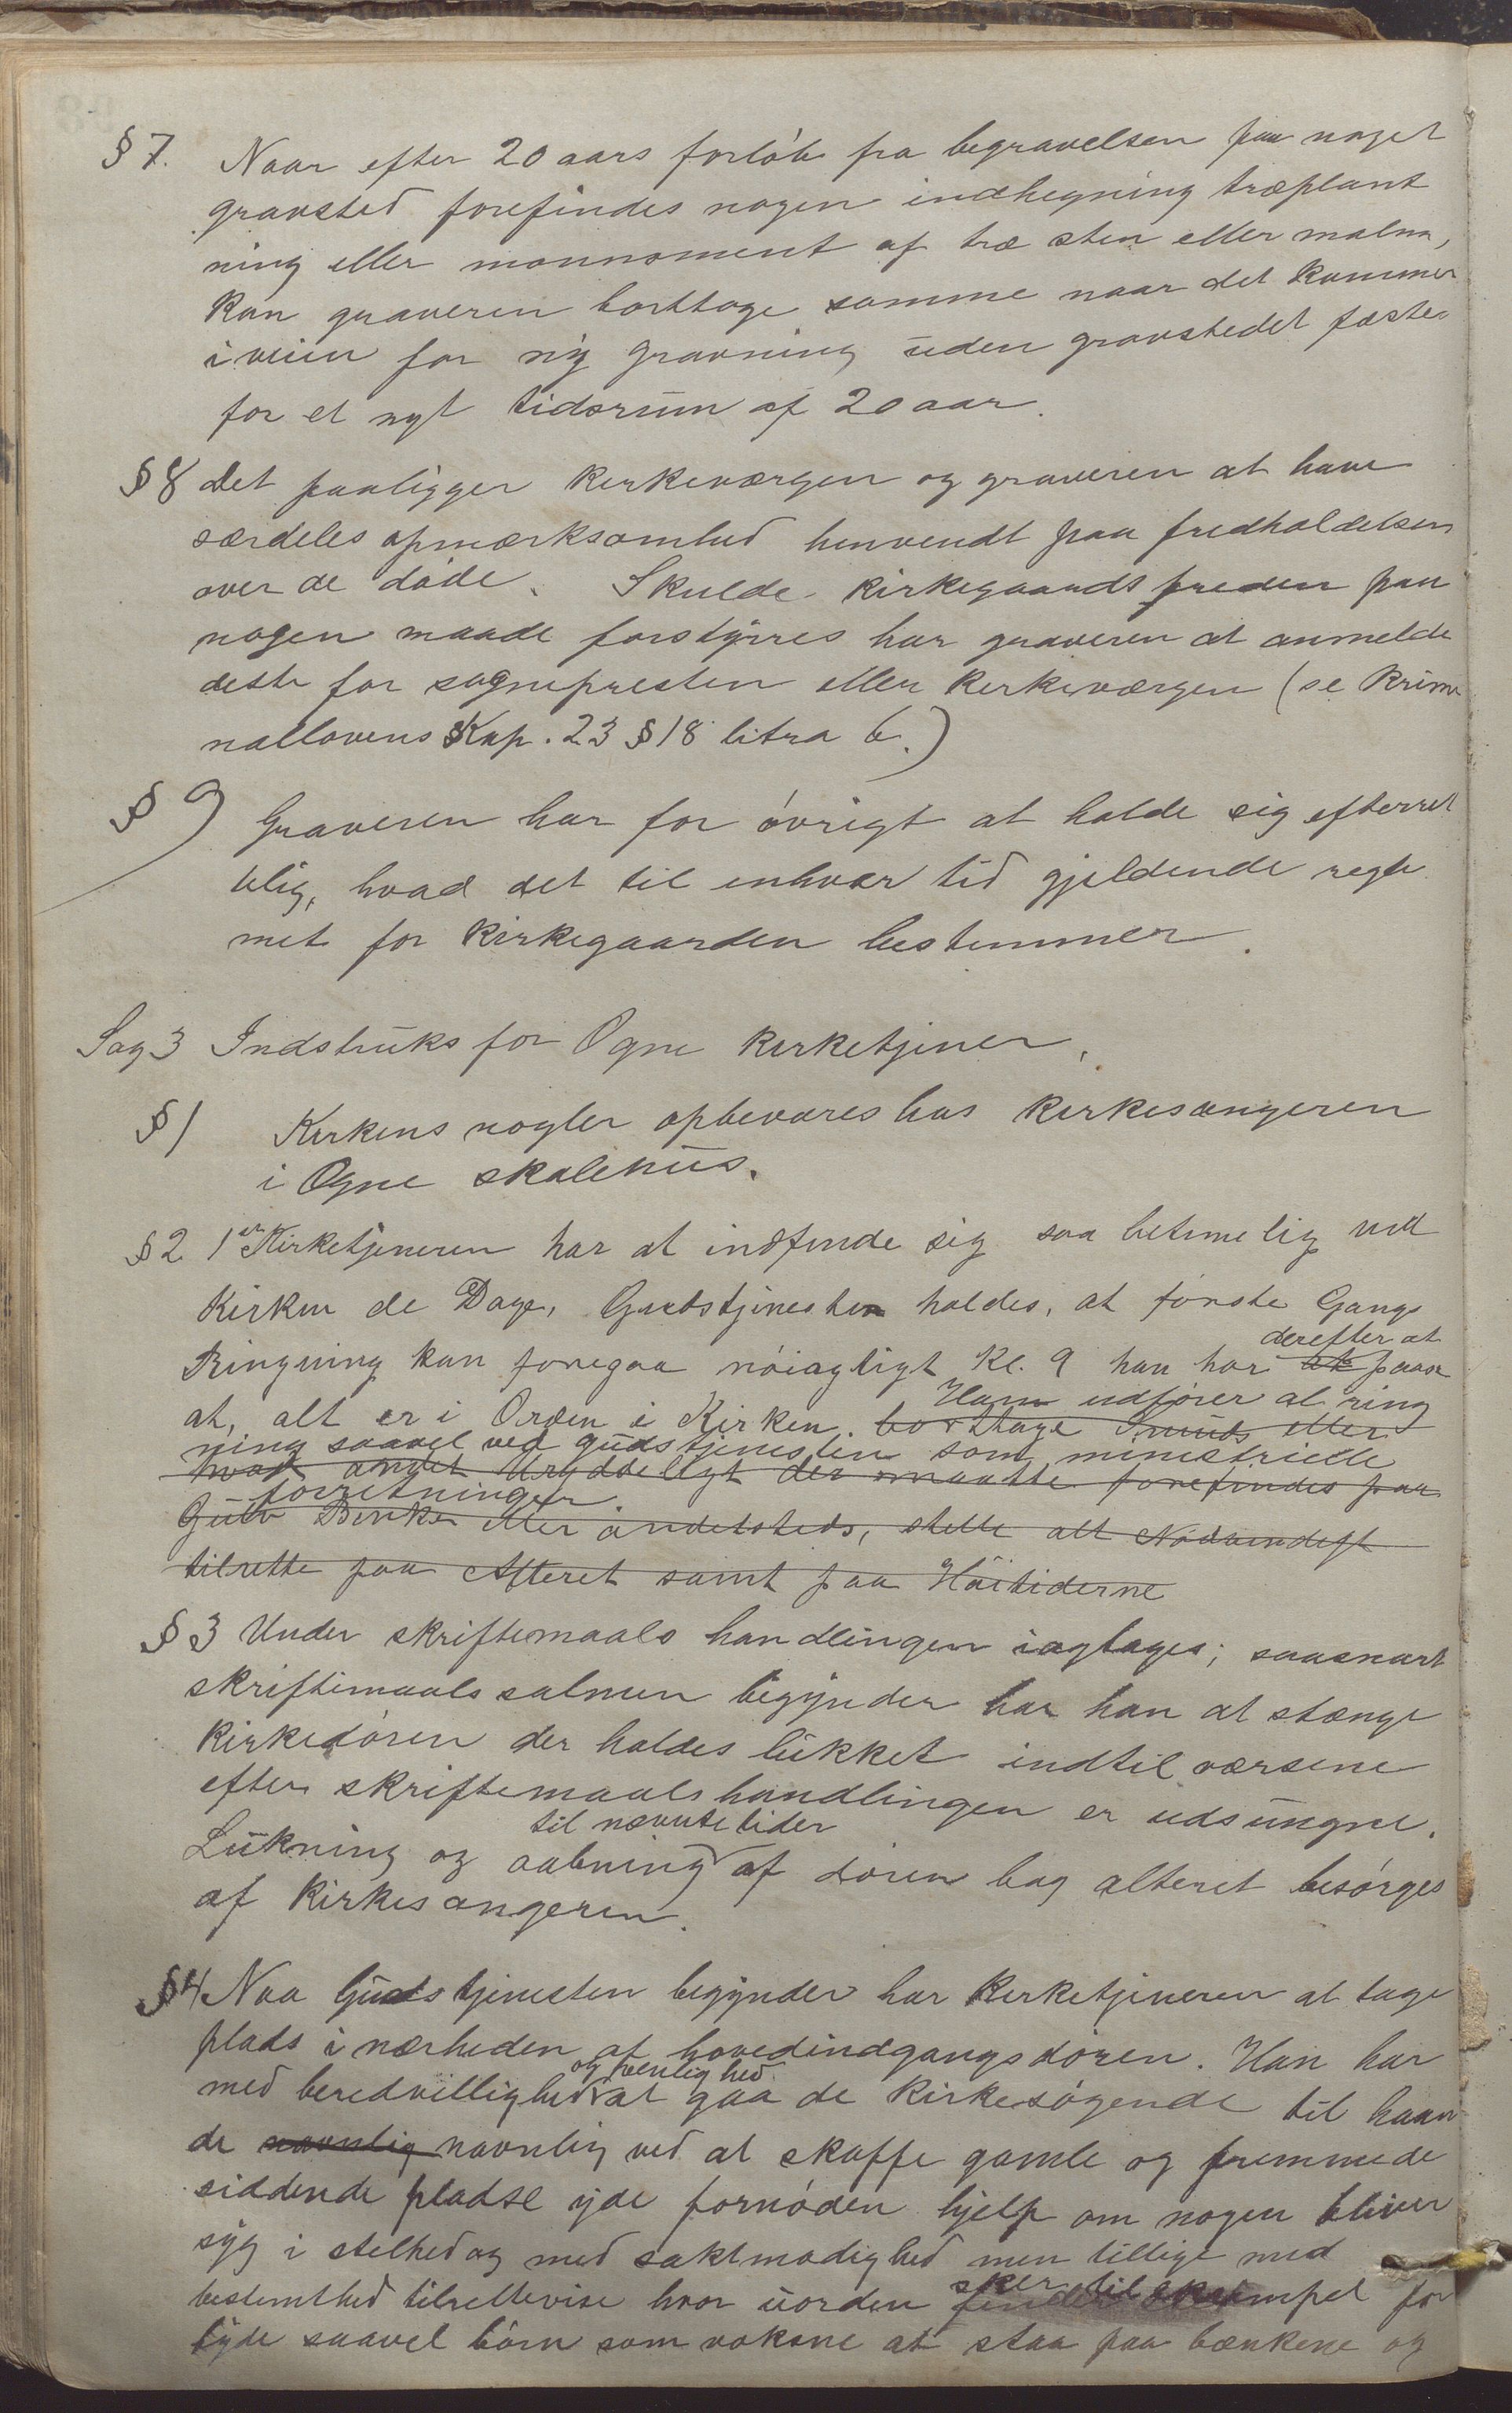 § 7. Naar efter 20 aars forløb fra begravelsen paa noget
gravsted forefindes nogen indhegning træplant
ning eller monnoment af træ sten eller malm,
kan graveren borttage samme naar det kommer
i veien for ny gravning uden gravstedet fæstes
for et nyt tidsrum af 20 aar.
§ 8 det paaligger kirkeværgen og graveren at have
særdeles opmærksomhed henvendt paa fredholdelsen
over de døde. Skulde kirkegaardsfreden paa
nogen maade forstyrres har graveren at anmelde
dette for sognepresten eller kirkeværgen (se Krimi
nallovens Kap. 23 § 18 litra b.)
§ 9 Graveren har for øvrigt at holde sig efterret
telig, hvad det til enhver tid gjeldende regle
ment for kirkegaarden bestemmer.
Sag 3 Indstruks for Ogne kirketjener.
§ 1 Kirkens nøgler opbevares hos kirkesangeren
i Ogne skolehus.
§ 2 1 Kirketjeneren har at indfinde sig saa betimelig ved
Kirken de Dage, Gudstjenesten holdes, at første Gangs
derefter at
Ringning kan foregaa nøiagtigt Kl. 9 han har at paase
Ham udfører al ring
at, alt er i Orden i Kirken. borttage Smuds eller
ning saavel ved gudstjenesten som ministrielle
hvad andet Uryddeligt der maatte forefindes paa
forretninger.
Gulv Benke eller andetsteds, stelle alt Nødvendigt
tilrette paa Alteret samt paa Høitiderne
§ 3 Under skriftemaals handlingen iagtages; saasnart
skriftemaalssalmen begynder har han at stænge
kirkedøren der holdes lukket indtil værsene
efter skriftemaalshandlingen er udsungne.
til nævnte tider
Lukning og aabning af døren bag alteret besørges
af kirkesangeren.
§ 4 Naa Gudstjenesten begynder har kirketjeneren at tage
plads i nærheden af hovedindgangsdøren. Han har
og venlighed
med beredvillighed at gaa de kirkesøgende til haan
de navnlig navnlig ved at skaffe gamle og fremmede
siddende pladse yde fornøden hjelp om nogen bliver
syg i stelhed og med saktmodighed men tillige med
sker til
bestemthed tilrettevise hvor uorden eksempel for
byde saavel børn som voksne at staa paa bænkene og